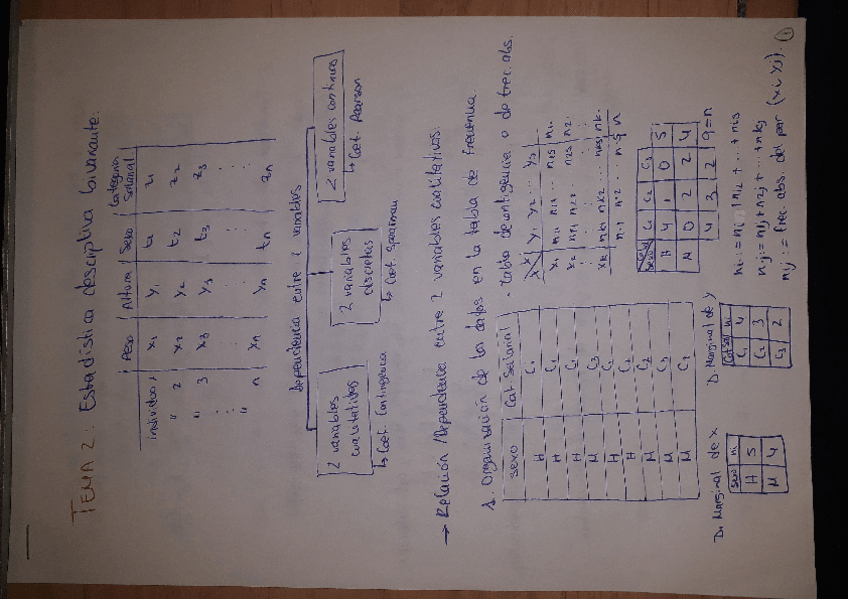 TEMA 2: Estadística descriptiva bivariante.
Peso Altura Sexo Categoría Salarial
individuo 1 x1 y1 t1 z1
" 2 x2 y2 t2 z2
" 3 x3 y3 t3 z3
⋮ ⋮ ⋮ ⋮ ⋮
" n xn yn tn zn
Dependencia entre 2 variables
2 variables cualitativas
↳ Coef. Contingencia
2 variables discretas
↳ Coef. Spearman
2 variables continuas
↳ Coef. Pearson
→ Relación/Dependencia entre 2 variables cualitativas:
1. Organización de los datos en la tabla de frecuencia.
Sexo Cat. Salarial
H C1
H
H
M C3
H
H
M C2
M C3
M
· Tabla de contigencia o de frec. abs.
x y y1 y2 ... ys
x1 n11 n12 ... n1s n1.
x2 n21 n22 ... n2s n2.
⋮ ⋮ ⋮ ⋮
xk nk1 nk2 ... nks nk.
n.1 n.2 ... n.s n
Sexo C1 C2 C3
H 4 1 0 5
M 0 2 2 4
4 3 2 9=n
D. Marginal de x
Sexo ni
H 5
M 4
D. Marginal de y
Cat Sal ni
C1 4
C2 3
C3 2
ni· = ni1 + ni2 + ... + nis
n·j = n1j + n2j + ... + nkj
nij = frec. abs. del par (xi yj).
1